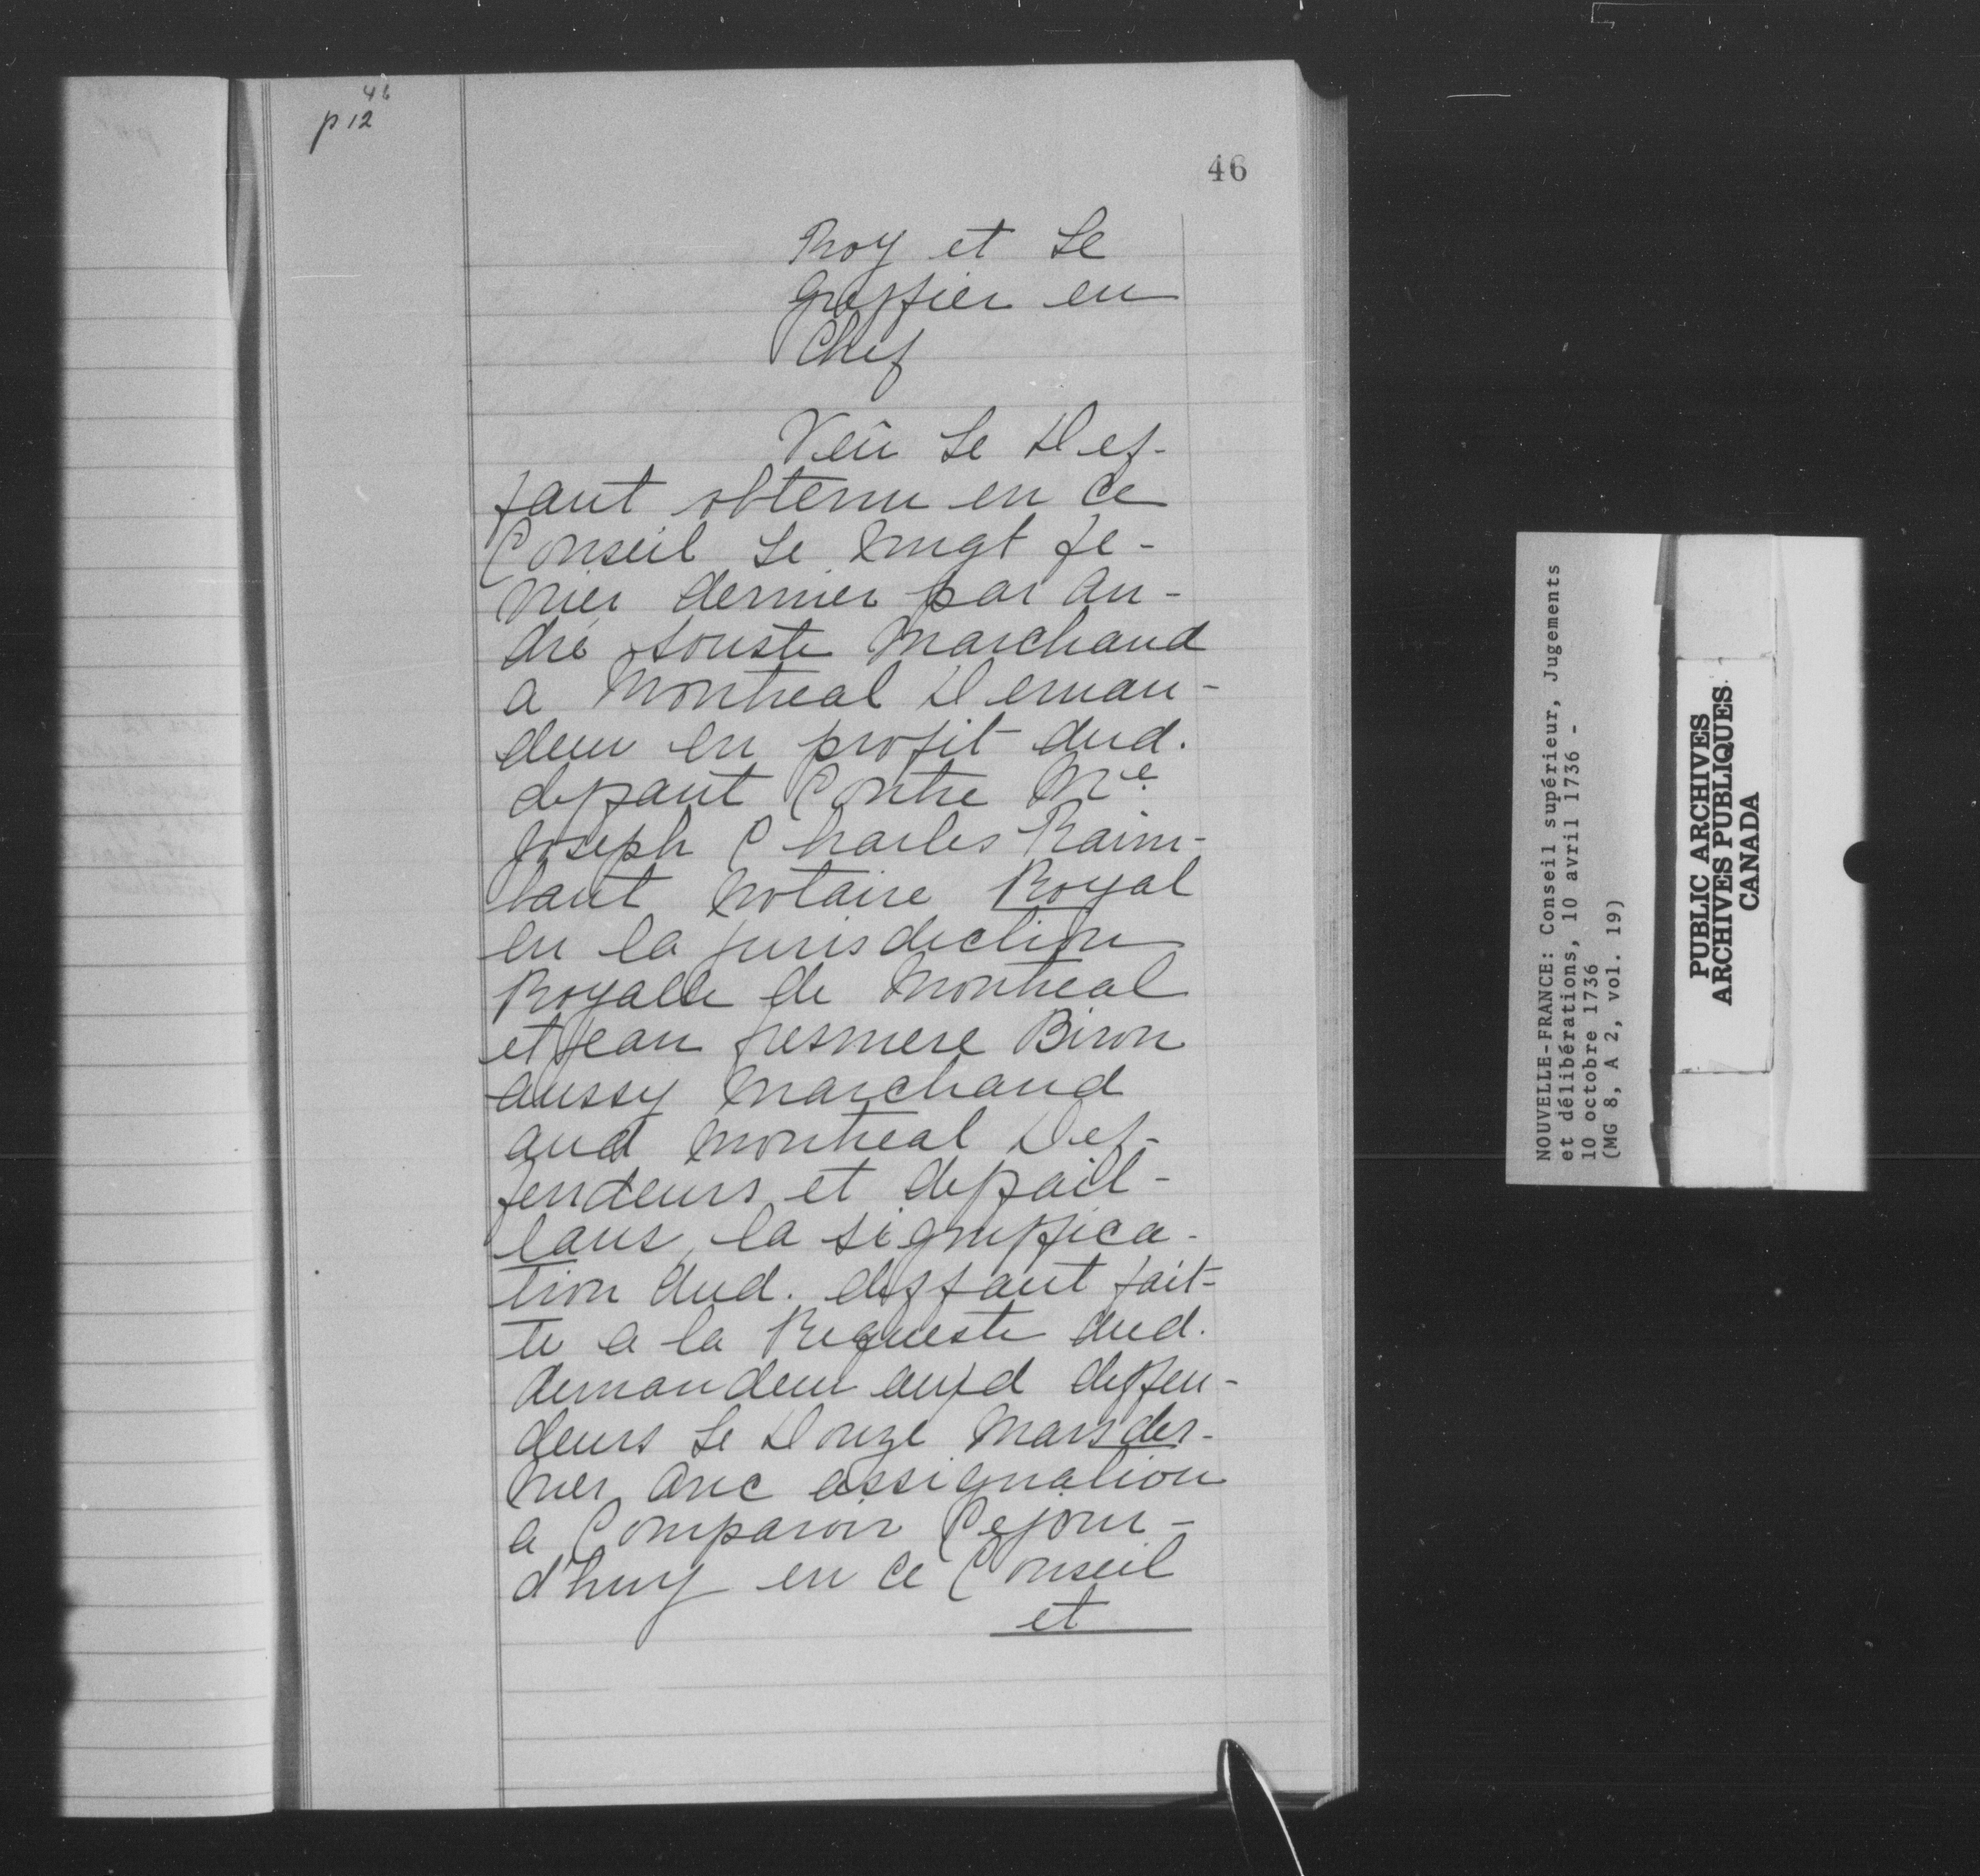 46
p 12
46
Roy et Le
Greffier en
Chef
Veû Le Def-
faut obtenu en ce
Conseil Le vingt fe-
vrier dernier par an-
dré souste marchand
a Montreal Deman-
deur en profit dud.
defaut Contre Me.
Joseph Charles Raim-
baut notaire Royal
en la jurisdiction
Royalle de Montreal
et Jean fresniere Biron
aussy marchand
aud montreal Def-
fendeurs et defail-
lans, la signiffica-
tion dud. deffaut fait-
te a la Requeste dud.
demandeur auxd deffen-
deurs Le Douze mars der-
nier avec assignation
a Comparoir Cejour-
d'huy en ce Conseil
et
NOUVELLE-FRANCE: Conseil supérieur, Jugements
et délibérations, 10 avril 1736 -
10 octobre 1736
(MG 8, A 2, vol. 19)
PUBLIC ARCHIVES
ARCHIVES PUBLIQUES
CANADA